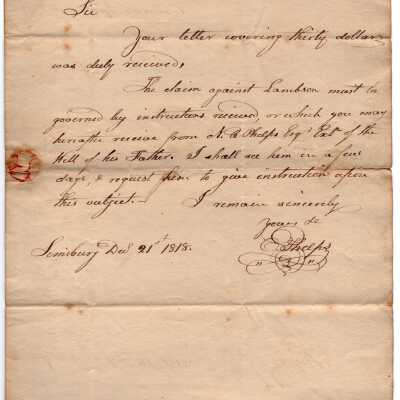 Sir
Your letter covering thirty dollars
was duly received,
The claim against Lambson must be
governed by instructions received, or which you may
hereafter receive from N. B. Phelps Esqr Exr of the
Will of his Father. I shall see him in a few
days, & request him to give instruction upon
this subject. — I remain sincerely
yours &c
E Phelps
Simsbury Decr 21st 1818.